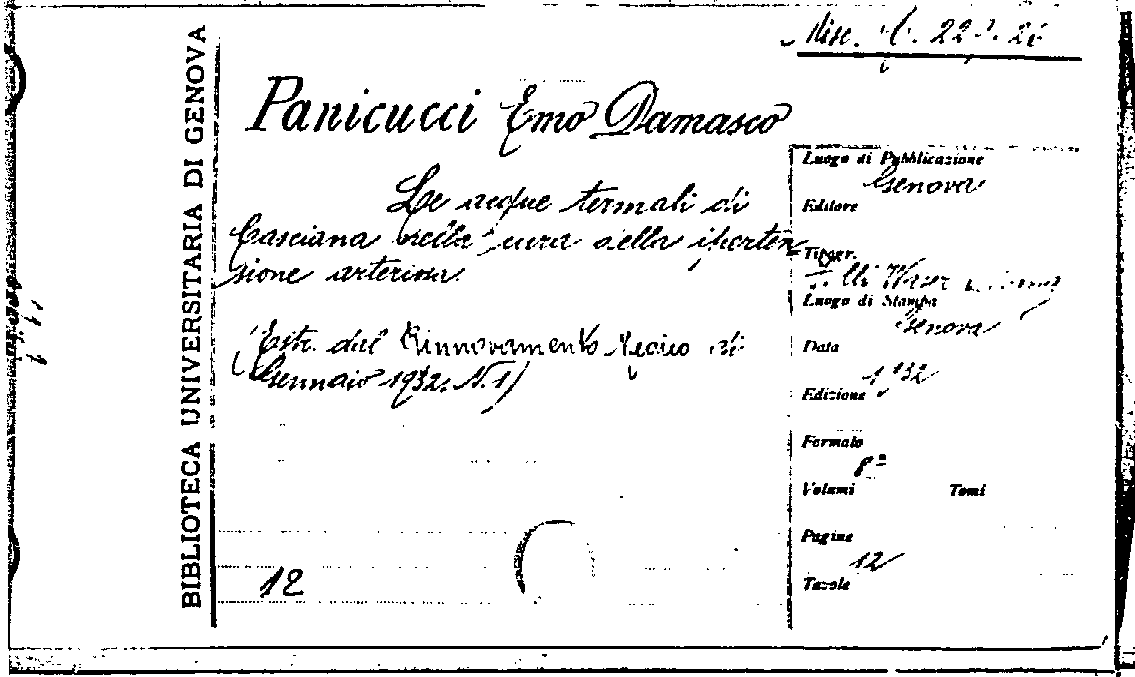 BIBLIOTECA UNIVERSITARIA DI GENOVA
Misc.
Panicucci Emo Damasco
Le acque termali di
Casciana nella cura della iperten
sione arteriosa
(Estr. dal Rinnovamento Medico di
Gennaio 1932. N. 1)
12
Luogo di Pubblicazione
Genova
Editore
Tipogr.
F.lli Waser
Luogo di Stampa
Genova
Data
1932
Edizione
Formato
8º
Volumi Tomi
Pagine
12
Tavole